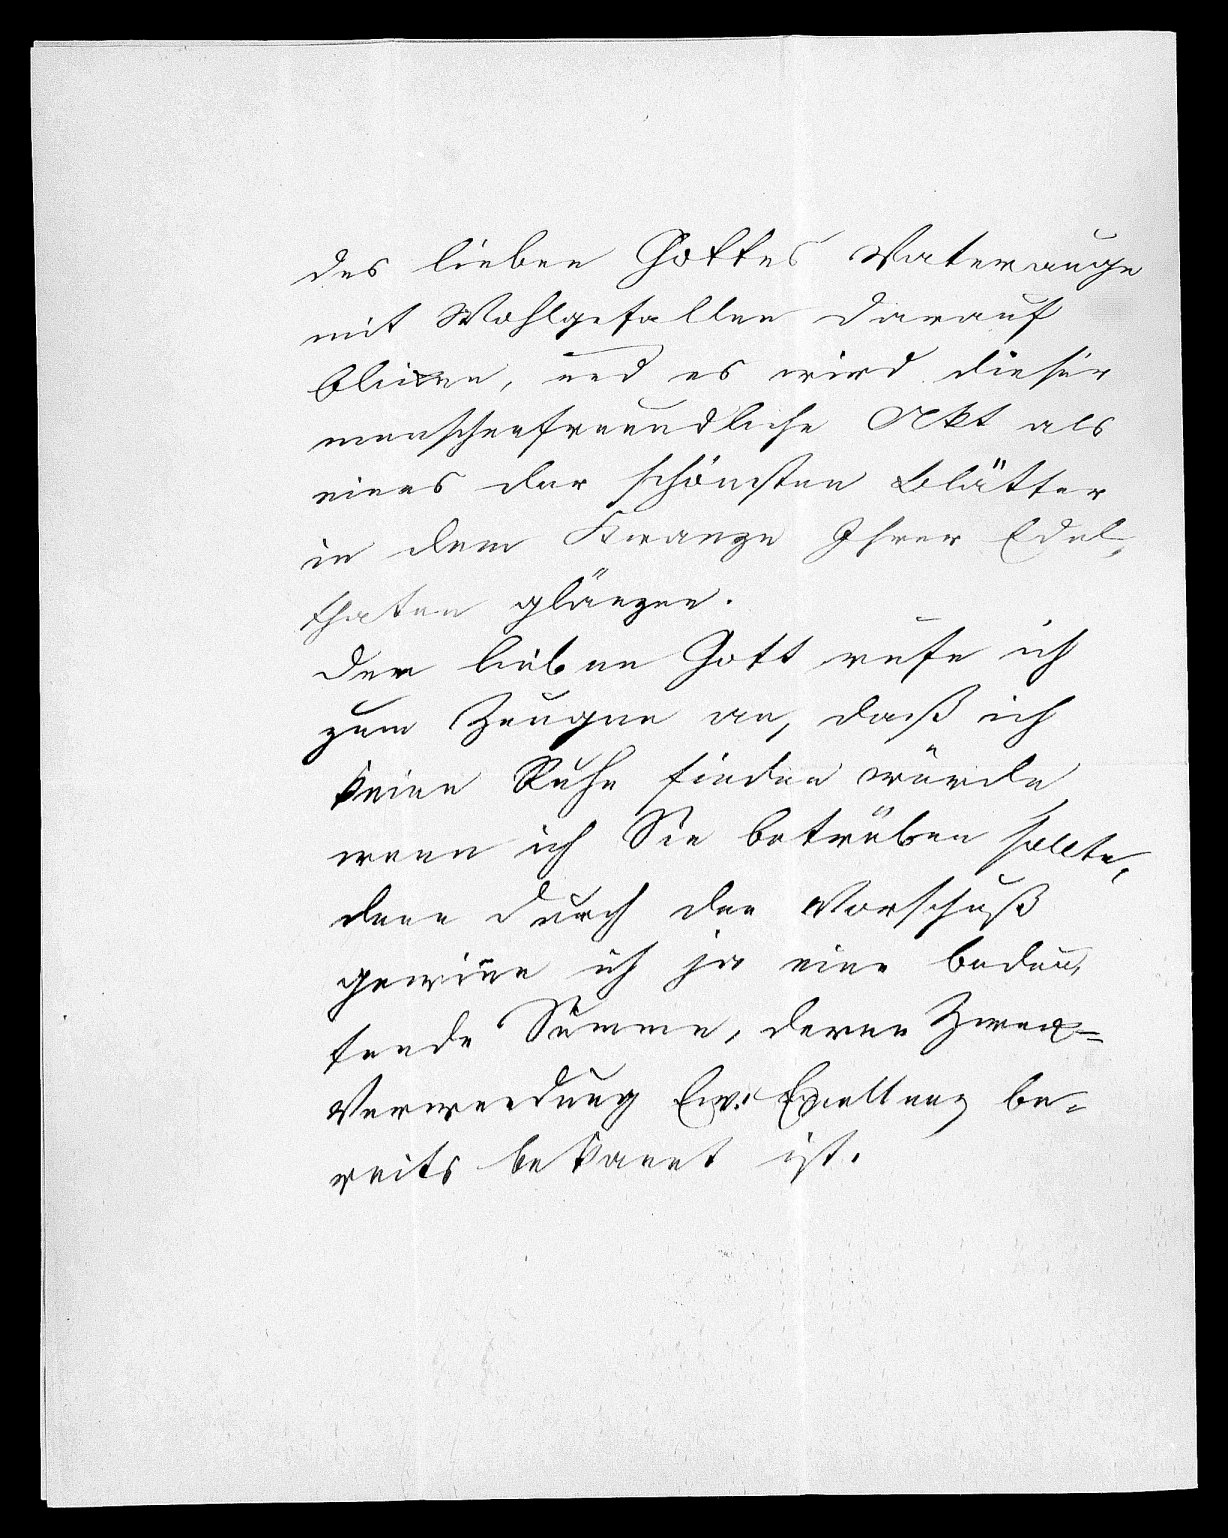 des lieben Gottes Vaterauge
mit Wohlgefallen darauf
blicken, und es wird dieser
menschenfreundliche Akt als
eines der schönsten Blätter
in dem Kranze Ihrer Edel-
thaten glänzen.
Den lieben Gott rufe ich
zum Zeugen an, daß ich
keine Ruhe finden würde
wenn ich Sie betrüben sollte,
denn durch den Vorschuß
gewinne ich ja eine bedeu-
tende Summe, deren Zweck=
Verwendung Ew. Excellenz be-
reits bekannt ist.